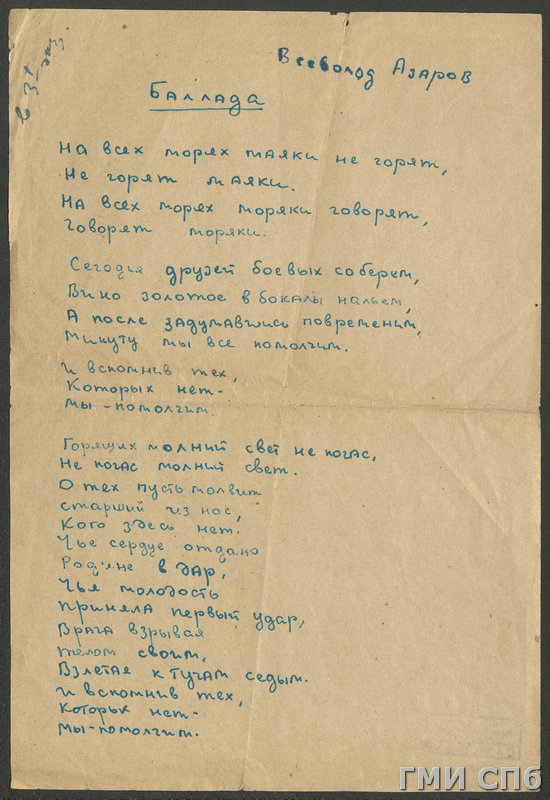 Всеволод Азаров
Баллада
На всех морях маяки не горят,
Не горят маяки.
На всех морях моряки говорят,
Говорят моряки.
Сегодня друзей боевых соберем,
Вино золотое в бокалы нальем,
А после задумавшись повременим,
Минуту мы все помолчим.
И вспомнив тех,
Которых нет-
Мы-помолчим.
Горящих молний свет не погас,
Не погас молний свет.
О тех пусть молвит
старший из нас,
Кого здесь нет.
Чье сердце отдано
Родине в дар,
Чья молодость
приняла первый удар,
Врага взрывая
телом своим,
Взлетая к тучам седым.
И вспомнив тех,
Которых нет-
Мы-помолчим.
ГМИ СПб